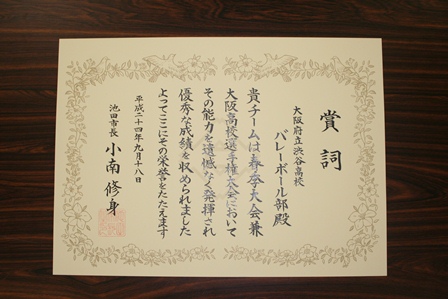 賞詞
大阪府立渋谷高校
バレーボール部殿
貴チームは春季大会兼
大阪高校選手権大会において
その能力を遺憾なく発揮され
優秀な成績を収められました
よってここにその栄誉をたたえます
平成二十四年九月十八日
池田市長 小南修身